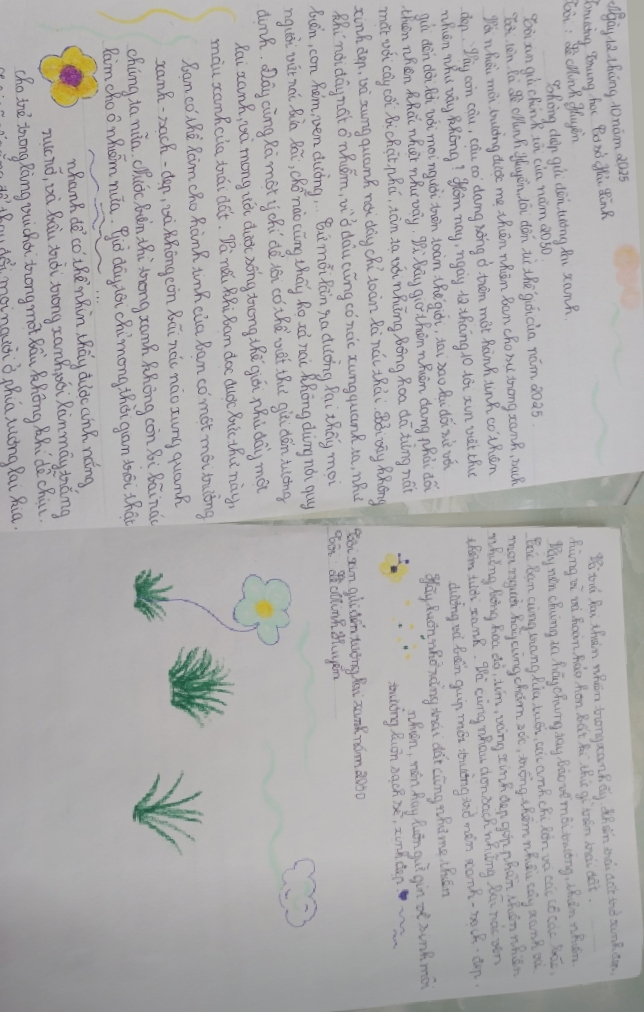 Ngày 12 tháng 10 năm 2025
Trường Trung học Cơ sở Hải Ninh
Tôi: Lê Minh Huyền
Thông điệp gửi đến tương lai xanh.
Tôi xin gửi chính tôi của năm 2030.
Tôi tên là Lê Minh Huyền, tôi đến từ thế giới của năm 2025.
Với nhiều môi trường được mẹ thiên nhiên ban cho sự trong xanh, sạch
đẹp. Vậy còn cậu, cậu có đang sống ở trên một hành tinh có thiên
nhiên như vậy không? Hôm nay, ngày 12 tháng 10 tôi xin viết thư
gửi đến đôi lời với mọi người trên toàn thế giới, tại sao lại đối xử với
thiên nhiên khắc nghiệt như vậy. Vì bây giờ thiên nhiên đang phải đối
mặt với cây cối bị chặt phá, tàn tạ với những bông hoa đã từng rất
xinh đẹp, và xung quanh nơi đây chỉ toàn là rác thải. Bởi vậy không
khí nơi đây rất ô nhiễm, vì ở đâu cũng có rác xung quanh ta, như
biển, con hẻm, ven đường,... Cứ mỗi lần ra đường lại thấy mọi
người vứt rác bừa bãi, chỗ nào cũng thấy họ xả rác không đúng nơi quy
định. Đây cũng là một ý chí để tôi có thể viết thư gửi đến tương
lai xanh, và mong ước được sống trong thế giới phủ đầy một
màu xanh của trái đất. Và nếu khi bạn đọc được bức thư này,
bạn có thể làm cho hành tinh của bạn có một môi trường
xanh - sạch - đẹp, và không còn bãi rác nào xung quanh
chúng ta nữa. Nước biển thì trong xanh không còn bị bãi rác
làm cho ô nhiễm nữa. Giờ đây, tôi chỉ mong thời gian trôi thật
nhanh để có thể nhìn thấy được ánh nắng
rực rỡ, và bầu trời trong xanh với làn mây trắng
cho trẻ trong làng vui chơi trong một bầu không khí dễ chịu.
thay đổi mọi người ở phía tương lai kia.
Vì trả lại thiên nhiên trong xanh ấy, khiến trái đất trở xanh đẹp,
hùng vĩ và hoàn hảo hơn bất kì thứ gì trên trái đất.
Vậy nên chúng ta hãy chung tay bảo vệ môi trường thiên nhiên.
Các bạn cùng trang lứa tuổi, các anh chị lớn và các cô các bác,
mọi người hãy cùng chăm sóc, trồng thêm nhiều cây xanh và
những bông hoa đỏ, tím, vàng xinh đẹp góp phần thiên nhiên
thêm tươi xanh. Và cùng nhau dọn sạch những bãi rác ven
đường và biển giúp môi trường trở nên xanh - sạch - đẹp.
Hãy luôn nhớ rằng trái đất cũng như mẹ thiên
nhiên, nên hãy luôn giữ gìn vệ sinh môi
trường luôn sạch sẽ, xinh đẹp.
Tôi xin gửi đến tương lai xanh năm 2030
Tôi: Lê Minh Huyền